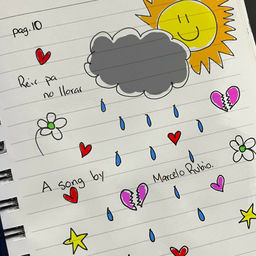 pag.10
Reir pa
no llorar
A song by Marcelo Rubio.